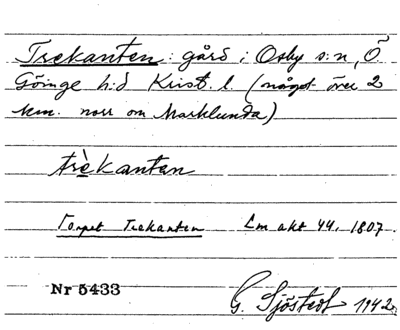 Trekanten: gård i Osby s:n, Ö.
Göinge h:d Krist. l. (något över 2
km. norr om Marklunda)
trèkantan
Torpet Trekanten Lm akt 44, 1807.
Nr 5433
G. Sjöstedt 1942